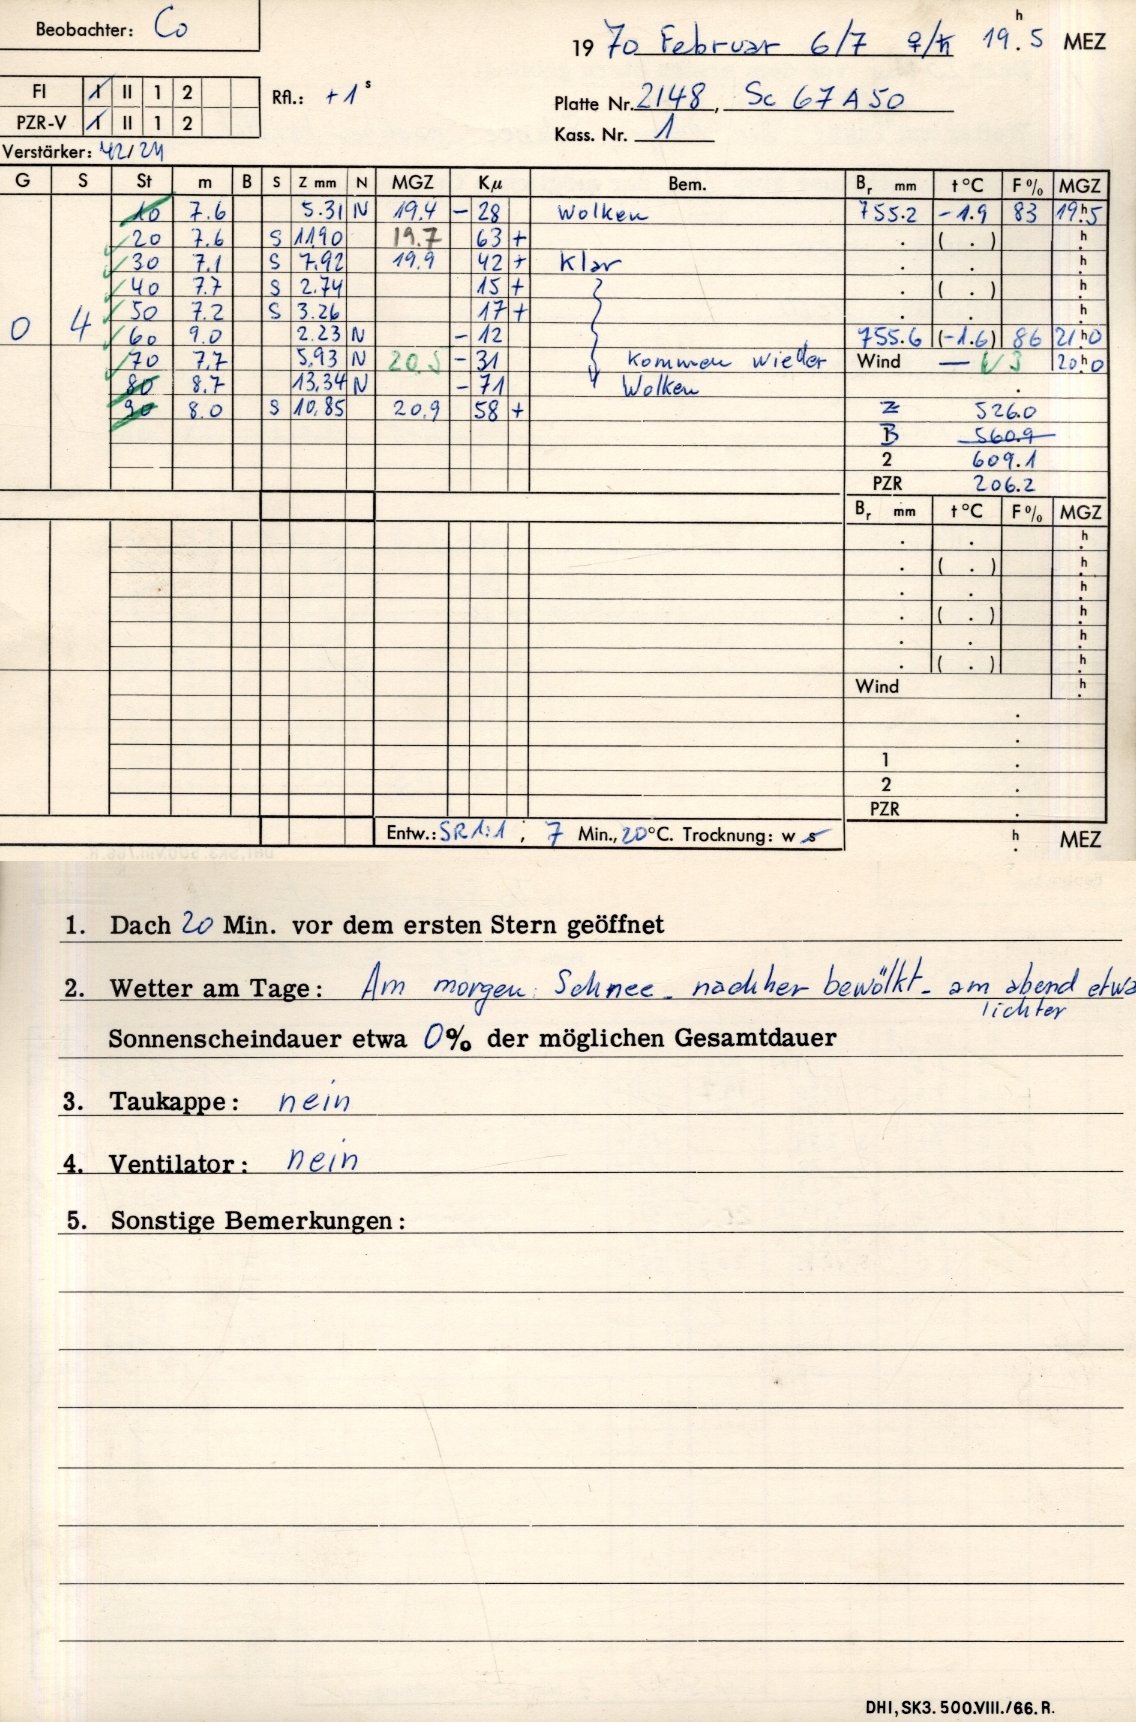 Beobachter: Co
19 70 Februar 6/7 ♀/♄ 19.ʰ5 MEZ
FI I II 1 2
Rfl.: +1ˢ
Platte Nr. 2148, Sc 67 A 50
PZR-V I II 1 2
Kass. Nr. 1
Verstärker: 42/24
G S St m B S Z mm N MGZ Kμ Bem. Bᵣ mm t°C F% MGZ
10 7.6 5.31 N 19.4 - 28 Wolken 755.2 -1.9 83 19.ʰ5
20 7.6 S 11.90 19.7 63 + . ( . ) .ʰ
30 7.1 S 7.92 19.9 42 + Klar . . .ʰ
40 7.7 S 2.74 15 + . ( . ) .ʰ
50 7.2 S 3.26 17 + . . .ʰ
0 4 60 9.0 2.23 N - 12 755.6 (-1.6) 86 21.ʰ0
70 7.7 5.93 N 20.5 - 31 kommen wieder Wind — 1/3 20.ʰ0
80 8.7 13.34 N - 71 Wolken .
90 8.0 S 10.85 20.9 58 + Z 526.0
B 560.9
2 609.1
PZR 206.2
Bᵣ mm t°C F% MGZ
. . .ʰ
. ( . ) .ʰ
. . .ʰ
. ( . ) .ʰ
. . .ʰ
. ( . ) .ʰ
Wind .ʰ
.
.
1 .
2 .
PZR .
Entw.: SR 1:1 ; 7 Min., 20°C. Trocknung: w s
.ʰ MEZ
1. Dach 20 Min. vor dem ersten Stern geöffnet
2. Wetter am Tage: Am morgen: Schnee - nachher bewölkt - am abend etwas
lichter
Sonnenscheindauer etwa 0% der möglichen Gesamtdauer
3. Taukappe: nein
4. Ventilator: nein
5. Sonstige Bemerkungen:
DHI, SK3. 500.VIII./66. R.